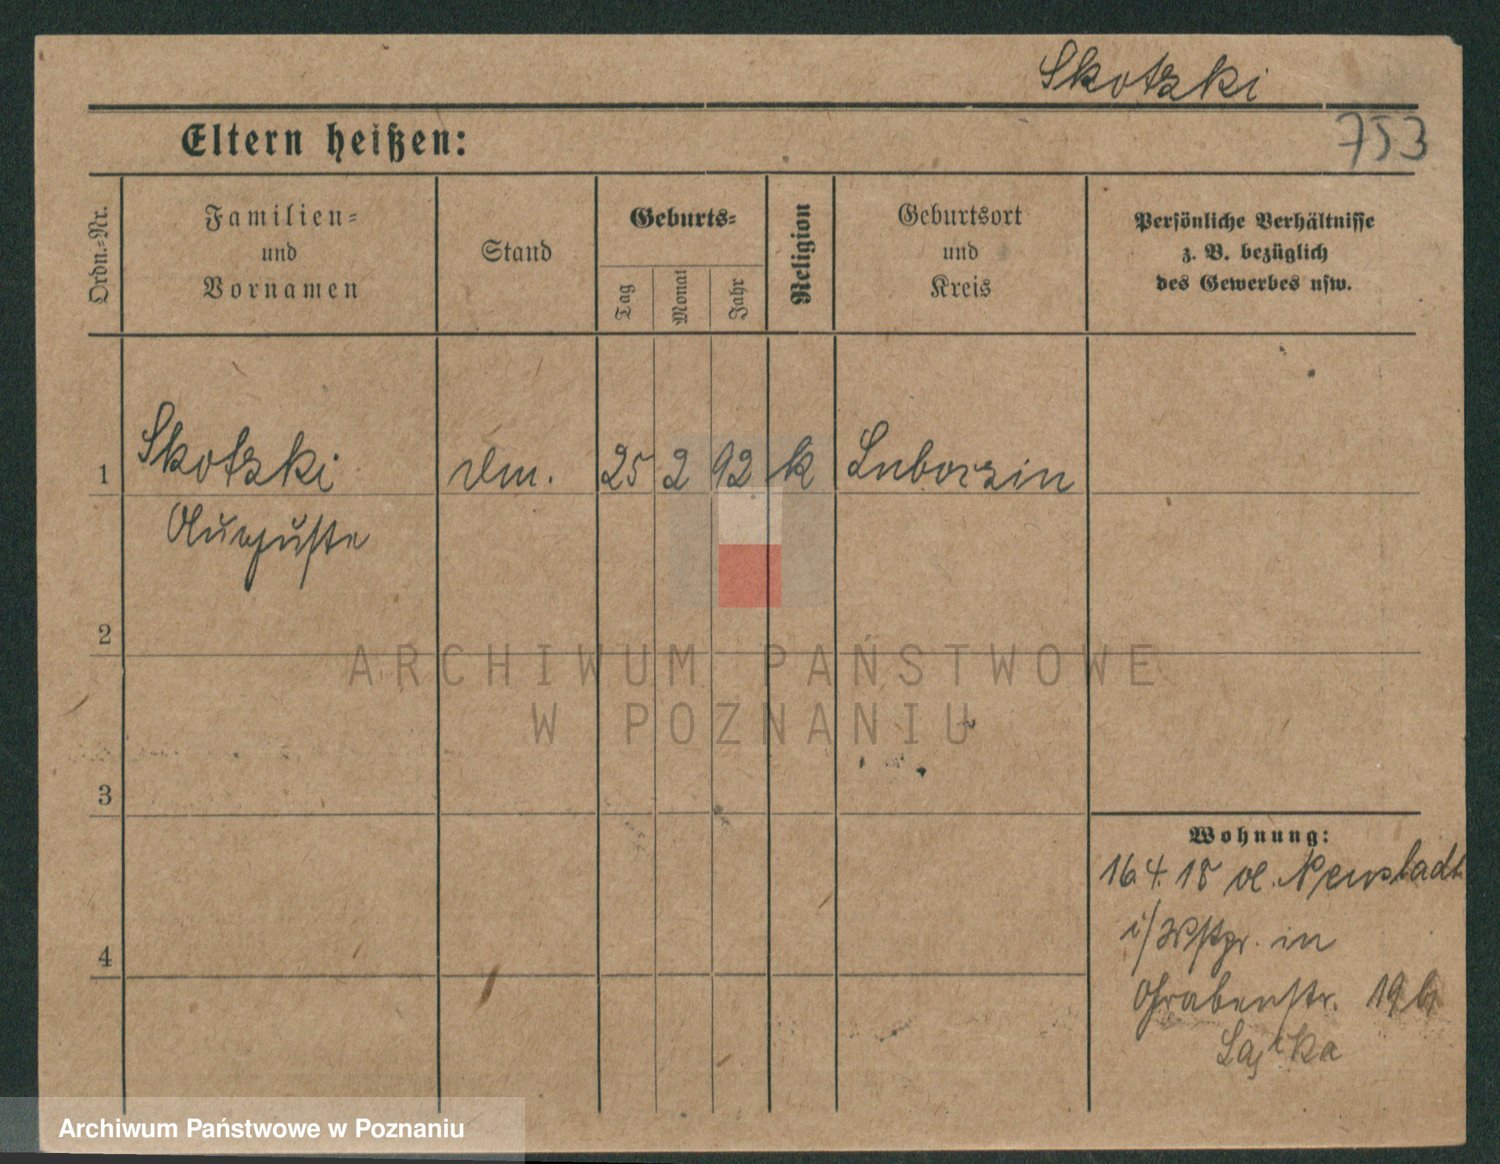 Skotzki
Eltern heißen:
753
Ordn.=Nr.
Familien=
und
Vornamen
Stand
Geburts=
Tag
Monat
Jahr
Religion
Geburtsort
und
Kreis
Persönliche Verhältnisse
z. B. bezüglich
des Gewerbes usw.
1 Skotzki 25 2 92 k
Auguste
2
ARCHIWUM PAŃSTWOWE
W POZNANIU
3
Wohnung:
16.4.18 Neustadt
i/Wstpr. in
4
Grabenstr. 19
Archiwum Państwowe w Poznaniu